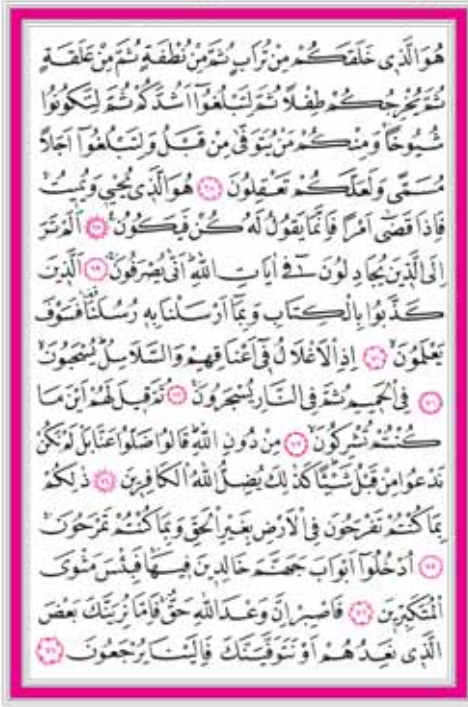 هُوَ الَّذٖى خَلَقَكُمْ مِنْ تُرَابٍ ثُمَّ مِنْ نُطْفَةٍ ثُمَّ مِنْ عَلَقَةٍ
ثُمَّ يُخْرِجُكُمْ طِفْلًا ثُمَّ لِتَبْلُغُٓوا اَشُدَّكُمْ ثُمَّ لِتَكُونُوا
شُيُوخًا وَمِنْكُمْ مَنْ يُتَوَفّٰى مِنْ قَبْلُ وَلِتَبْلُغُٓوا اَجَلًا
مُسَمًّى وَلَعَلَّكُمْ تَعْقِلُونَ ﴿٦٧﴾ هُوَ الَّذٖى يُحْيٖ وَيُمٖيتُ
فَاِذَا قَضٰٓى اَمْرًا فَاِنَّمَا يَقُولُ لَهُ كُنْ فَيَكُونُ ﴿٦٨﴾ اَلَمْ تَرَ
اِلَى الَّذٖينَ يُجَادِلُونَ فٖٓى اٰيَاتِ اللّٰهِ اَنّٰى يُصْرَفُونَ ﴿٦٩﴾ اَلَّذٖينَ
كَذَّبُوا بِالْكِتَابِ وَبِمَٓا اَرْسَلْنَا بِهٖ رُسُلَنَا فَسَوْفَ
يَعْلَمُونَ ﴿٧٠﴾ اِذِ الْاَغْلَالُ فٖٓى اَعْنَاقِهِمْ وَالسَّلَاسِلُ يُسْحَبُونَ
﴿٧١﴾ فِى الْحَمٖيمِ ثُمَّ فِى النَّارِ يُسْجَرُونَ ﴿٧٢﴾ ثُمَّ قٖيلَ لَهُمْ اَيْنَ مَا
كُنْتُمْ تُشْرِكُونَ ﴿٧٣﴾ مِنْ دُونِ اللّٰهِ قَالُوا ضَلُّوا عَنَّا بَلْ لَمْ نَكُنْ
نَدْعُوا مِنْ قَبْلُ شَيْئًا كَذٰلِكَ يُضِلُّ اللّٰهُ الْكَافِرٖينَ ﴿٧٤﴾ ذٰلِكُمْ
بِمَا كُنْتُمْ تَفْرَحُونَ فِى الْاَرْضِ بِغَيْرِ الْحَقِّ وَبِمَا كُنْتُمْ تَمْرَحُونَ
﴿٧٥﴾ اُدْخُلُٓوا اَبْوَابَ جَهَنَّمَ خَالِدٖينَ فٖيهَا فَبِئْسَ مَثْوَى
الْمُتَكَبِّرٖينَ ﴿٧٦﴾ فَاصْبِرْ اِنَّ وَعْدَ اللّٰهِ حَقٌّ فَاِمَّا نُرِيَنَّكَ بَعْضَ
الَّذٖى نَعِدُهُمْ اَوْ نَتَوَفَّيَنَّكَ فَاِلَيْنَا يُرْجَعُونَ ﴿٧٧﴾